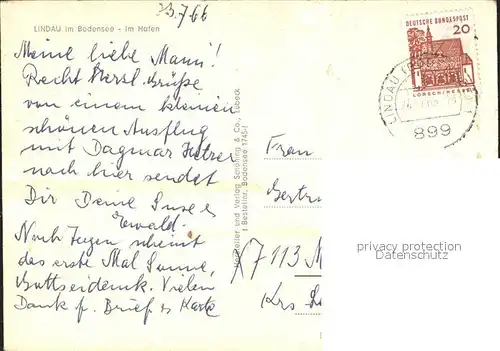 23.7.66
LINDAU im Bodensee - Im Hafen
Meine liebe Mami!
Recht Herzl. Grüße
von einem kleinen
schönen Ausflug
mit Dagmar
nach hier sendet
Dir Deine Suse u.
Ewald.
Nach Tagen scheint
das erste Mal Sonne,
Gottseidank. Vielen
Dank f. Brief u. Karte
Hersteller und Verlag Schöning & Co., Lübeck
Bestellnr. Bodensee
Frau
Gertr
7113
Krs
DEUTSCHE BUNDESPOST
20
LORSCH/HESSEN
LINDAU
899
privacy protection
AnsichtskartenVersand.com